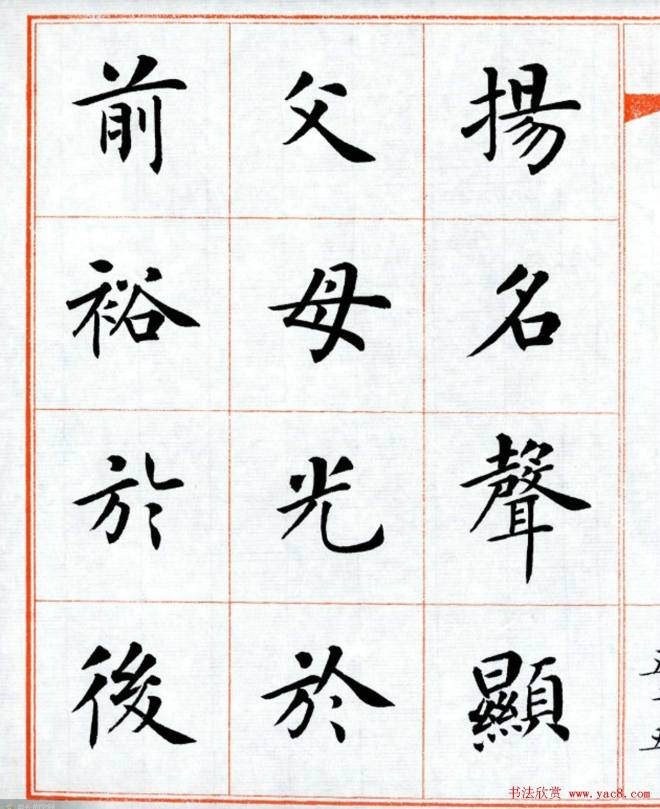 揚名聲顯
父母光於
前裕於後
五十五
书法欣赏 www.yac8.com